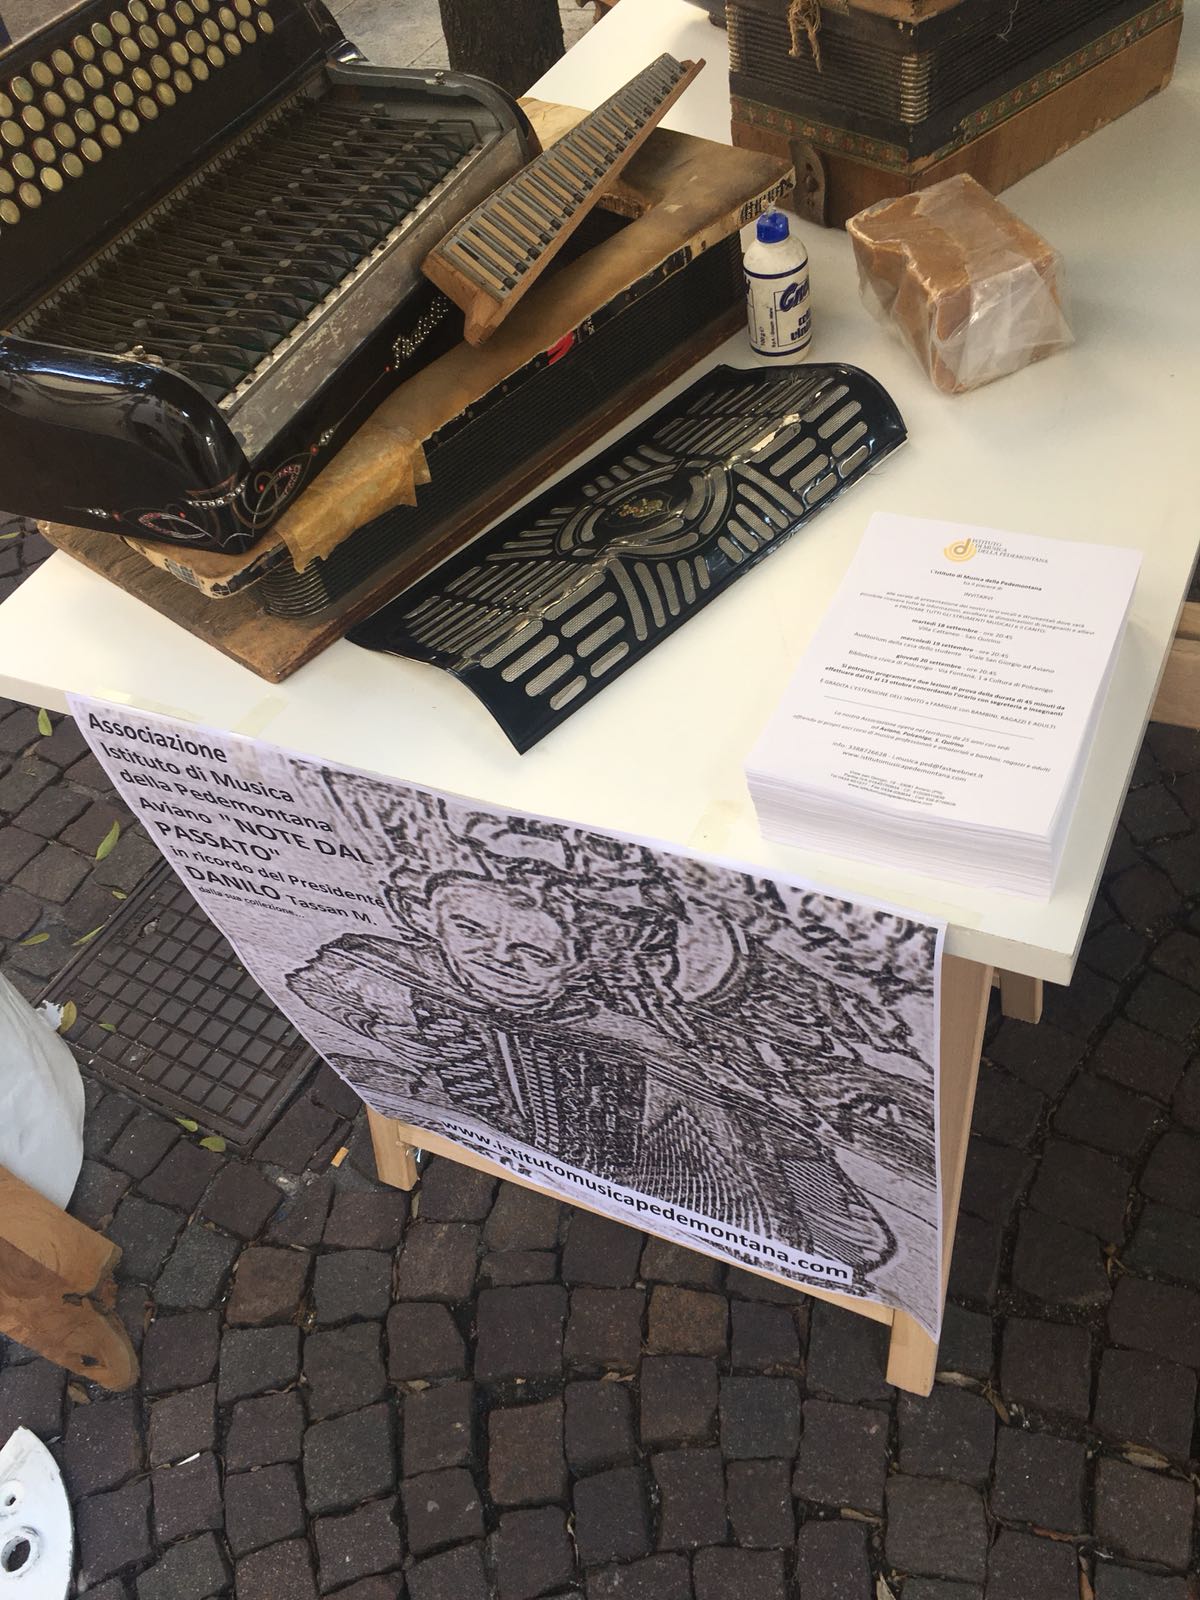 Associazione
Istituto di Musica
della Pedemontana
Aviano "NOTE DAL
PASSATO"
in ricordo del Presidente
DANILO Tassan M.
dalla sua collezione...
www.istitutomusicapedemontana.com
ISTITUTO
DI MUSICA
DELLA PEDEMONTANA
L'Istituto di Musica della Pedemontana
ha il piacere di
INVITARVI
alle serate di presentazione dei nostri corsi vocali e strumentali dove sarà
possibile ricevere tutte le informazioni, ascoltare le dimostrazioni di insegnanti e allievi
e PROVARE TUTTI GLI STRUMENTI MUSICALI e il CANTO:
martedì 18 settembre - ore 20:45
Villa Cattaneo - San Quirino
mercoledì 19 settembre - ore 20:45
Auditorium della casa dello studente - Viale San Giorgio ad Aviano
giovedì 20 settembre - ore 20:45
Biblioteca civica di Polcenigo - Via Fontana, 1 a Coltura di Polcenigo
Si potranno programmare due lezioni di prova della durata di 45 minuti da
effettuare dal 01 al 13 ottobre concordando l'orario con segreteria e insegnanti
È GRADITA L'ESTENSIONE DELL'INVITO a FAMIGLIE con BAMBINI, RAGAZZI E ADULTI
La nostra Associazione opera nel territorio da 25 anni con sedi
ad Aviano, Polcenigo, S. Quirino
offrendo ai propri soci corsi di musica professionali e amatoriali a bambini, ragazzi e adulti
info: 3388726628 - i.musica.ped@fastwebnet.it
www.istitutomusicapedemontana.com
www.istitutomusicapedemontana.com
100 g